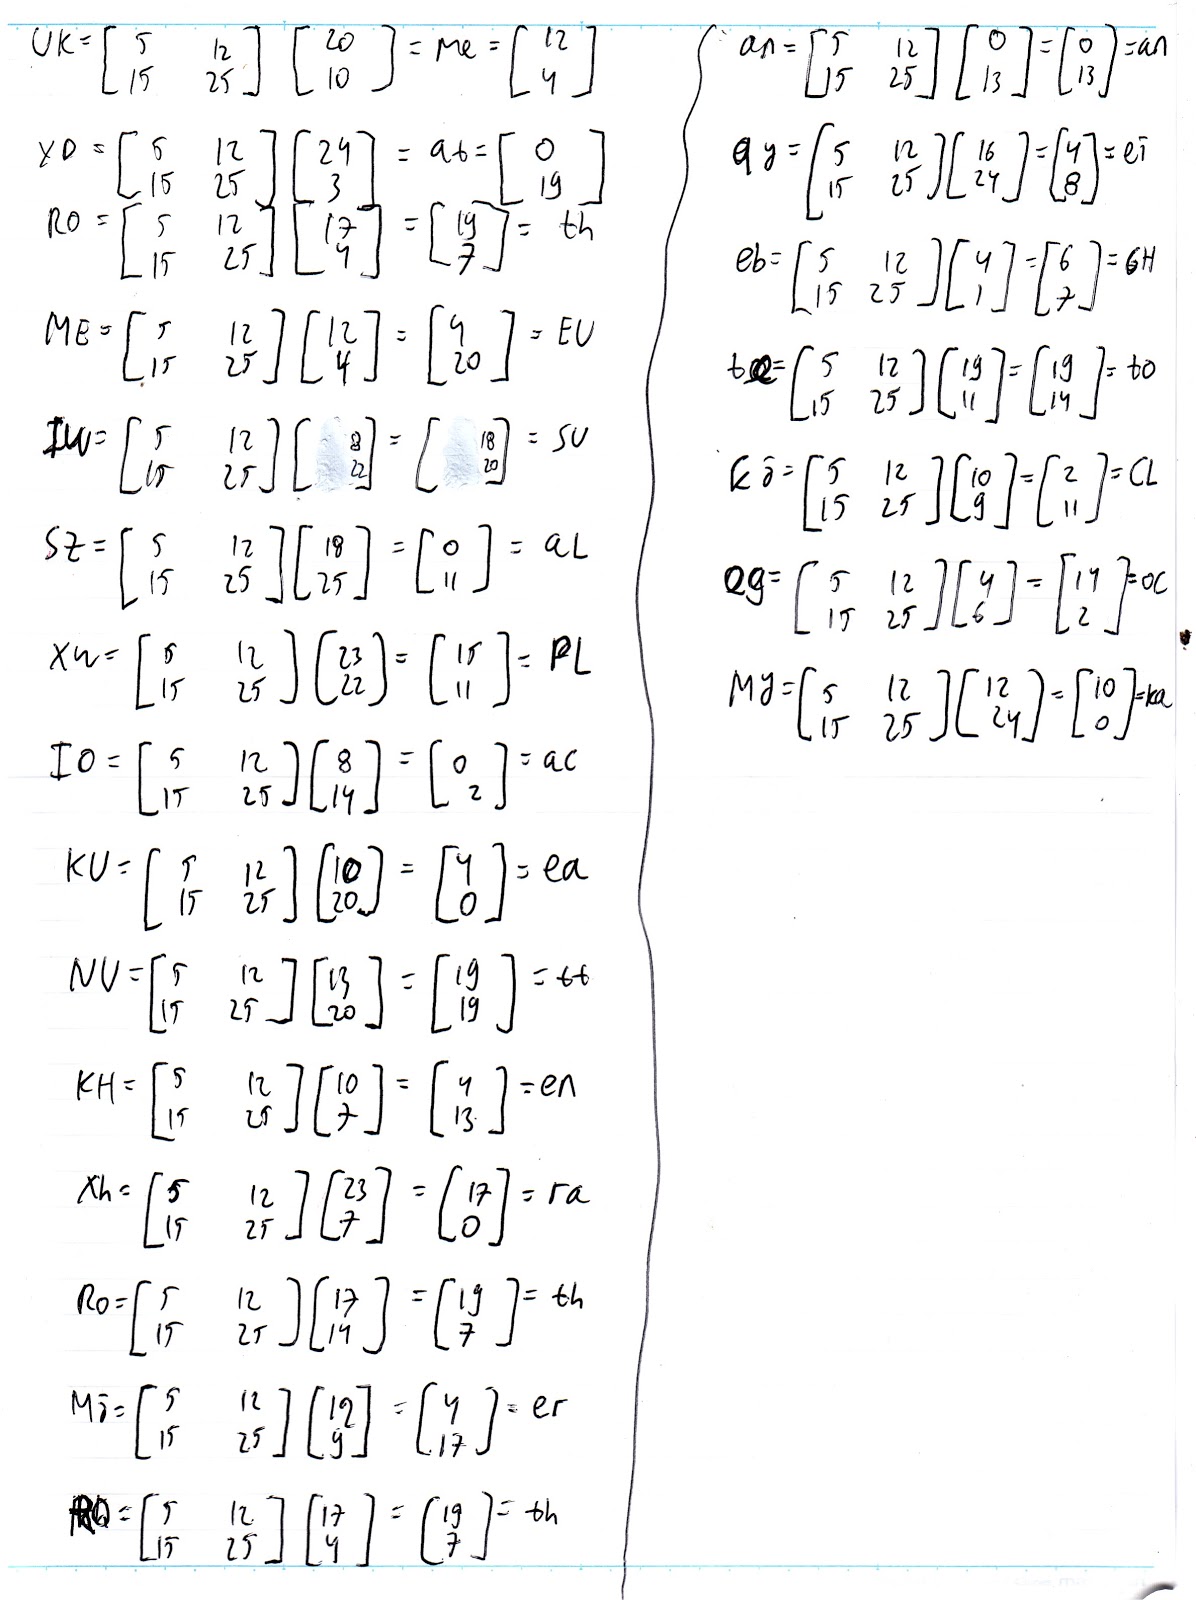 UK = [5 12; 15 25] [20; 10] = Me = [12; 4]
XD = [5 12; 15 25] [24; 3] = at = [0; 19]
RO = [5 12; 15 25] [17; 4] = [19; 7] = th
ME = [5 12; 15 25] [12; 4] = [4; 20] = EU
IW = [5 12; 15 25] [8; 22] = [18; 20] = SU
SZ = [5 12; 15 25] [18; 25] = [0; 11] = aL
XW = [5 12; 15 25] [23; 22] = [15; 11] = PL
IO = [5 12; 15 25] [8; 14] = [0; 2] = ac
KU = [5 12; 15 25] [10; 20] = [4; 0] = ea
NU = [5 12; 15 25] [13; 20] = [19; 19] = tt
KH = [5 12; 15 25] [10; 7] = [4; 13] = en
Xh = [5 12; 15 25] [23; 7] = [17; 0] = ra
Ro = [5 12; 15 25] [17; 14] = [19; 7] = th
Mj = [5 12; 15 25] [12; 9] = [4; 17] = er
= [5 12; 15 25] [17; 4] = [19; 7] = th
an = [5 12; 15 25] [0; 13] = [0; 13] = an
qy = [5 12; 15 25] [16; 24] = [4; 8] = ei
eb = [5 12; 15 25] [4; 1] = [6; 7] = GH
= [5 12; 15 25] [19; 11] = [19; 14] = to
Kj = [5 12; 15 25] [10; 9] = [2; 11] = CL
eg = [5 12; 15 25] [4; 6] = [14; 2] = oc
My = [5 12; 15 25] [12; 24] = [10; 0] = ka